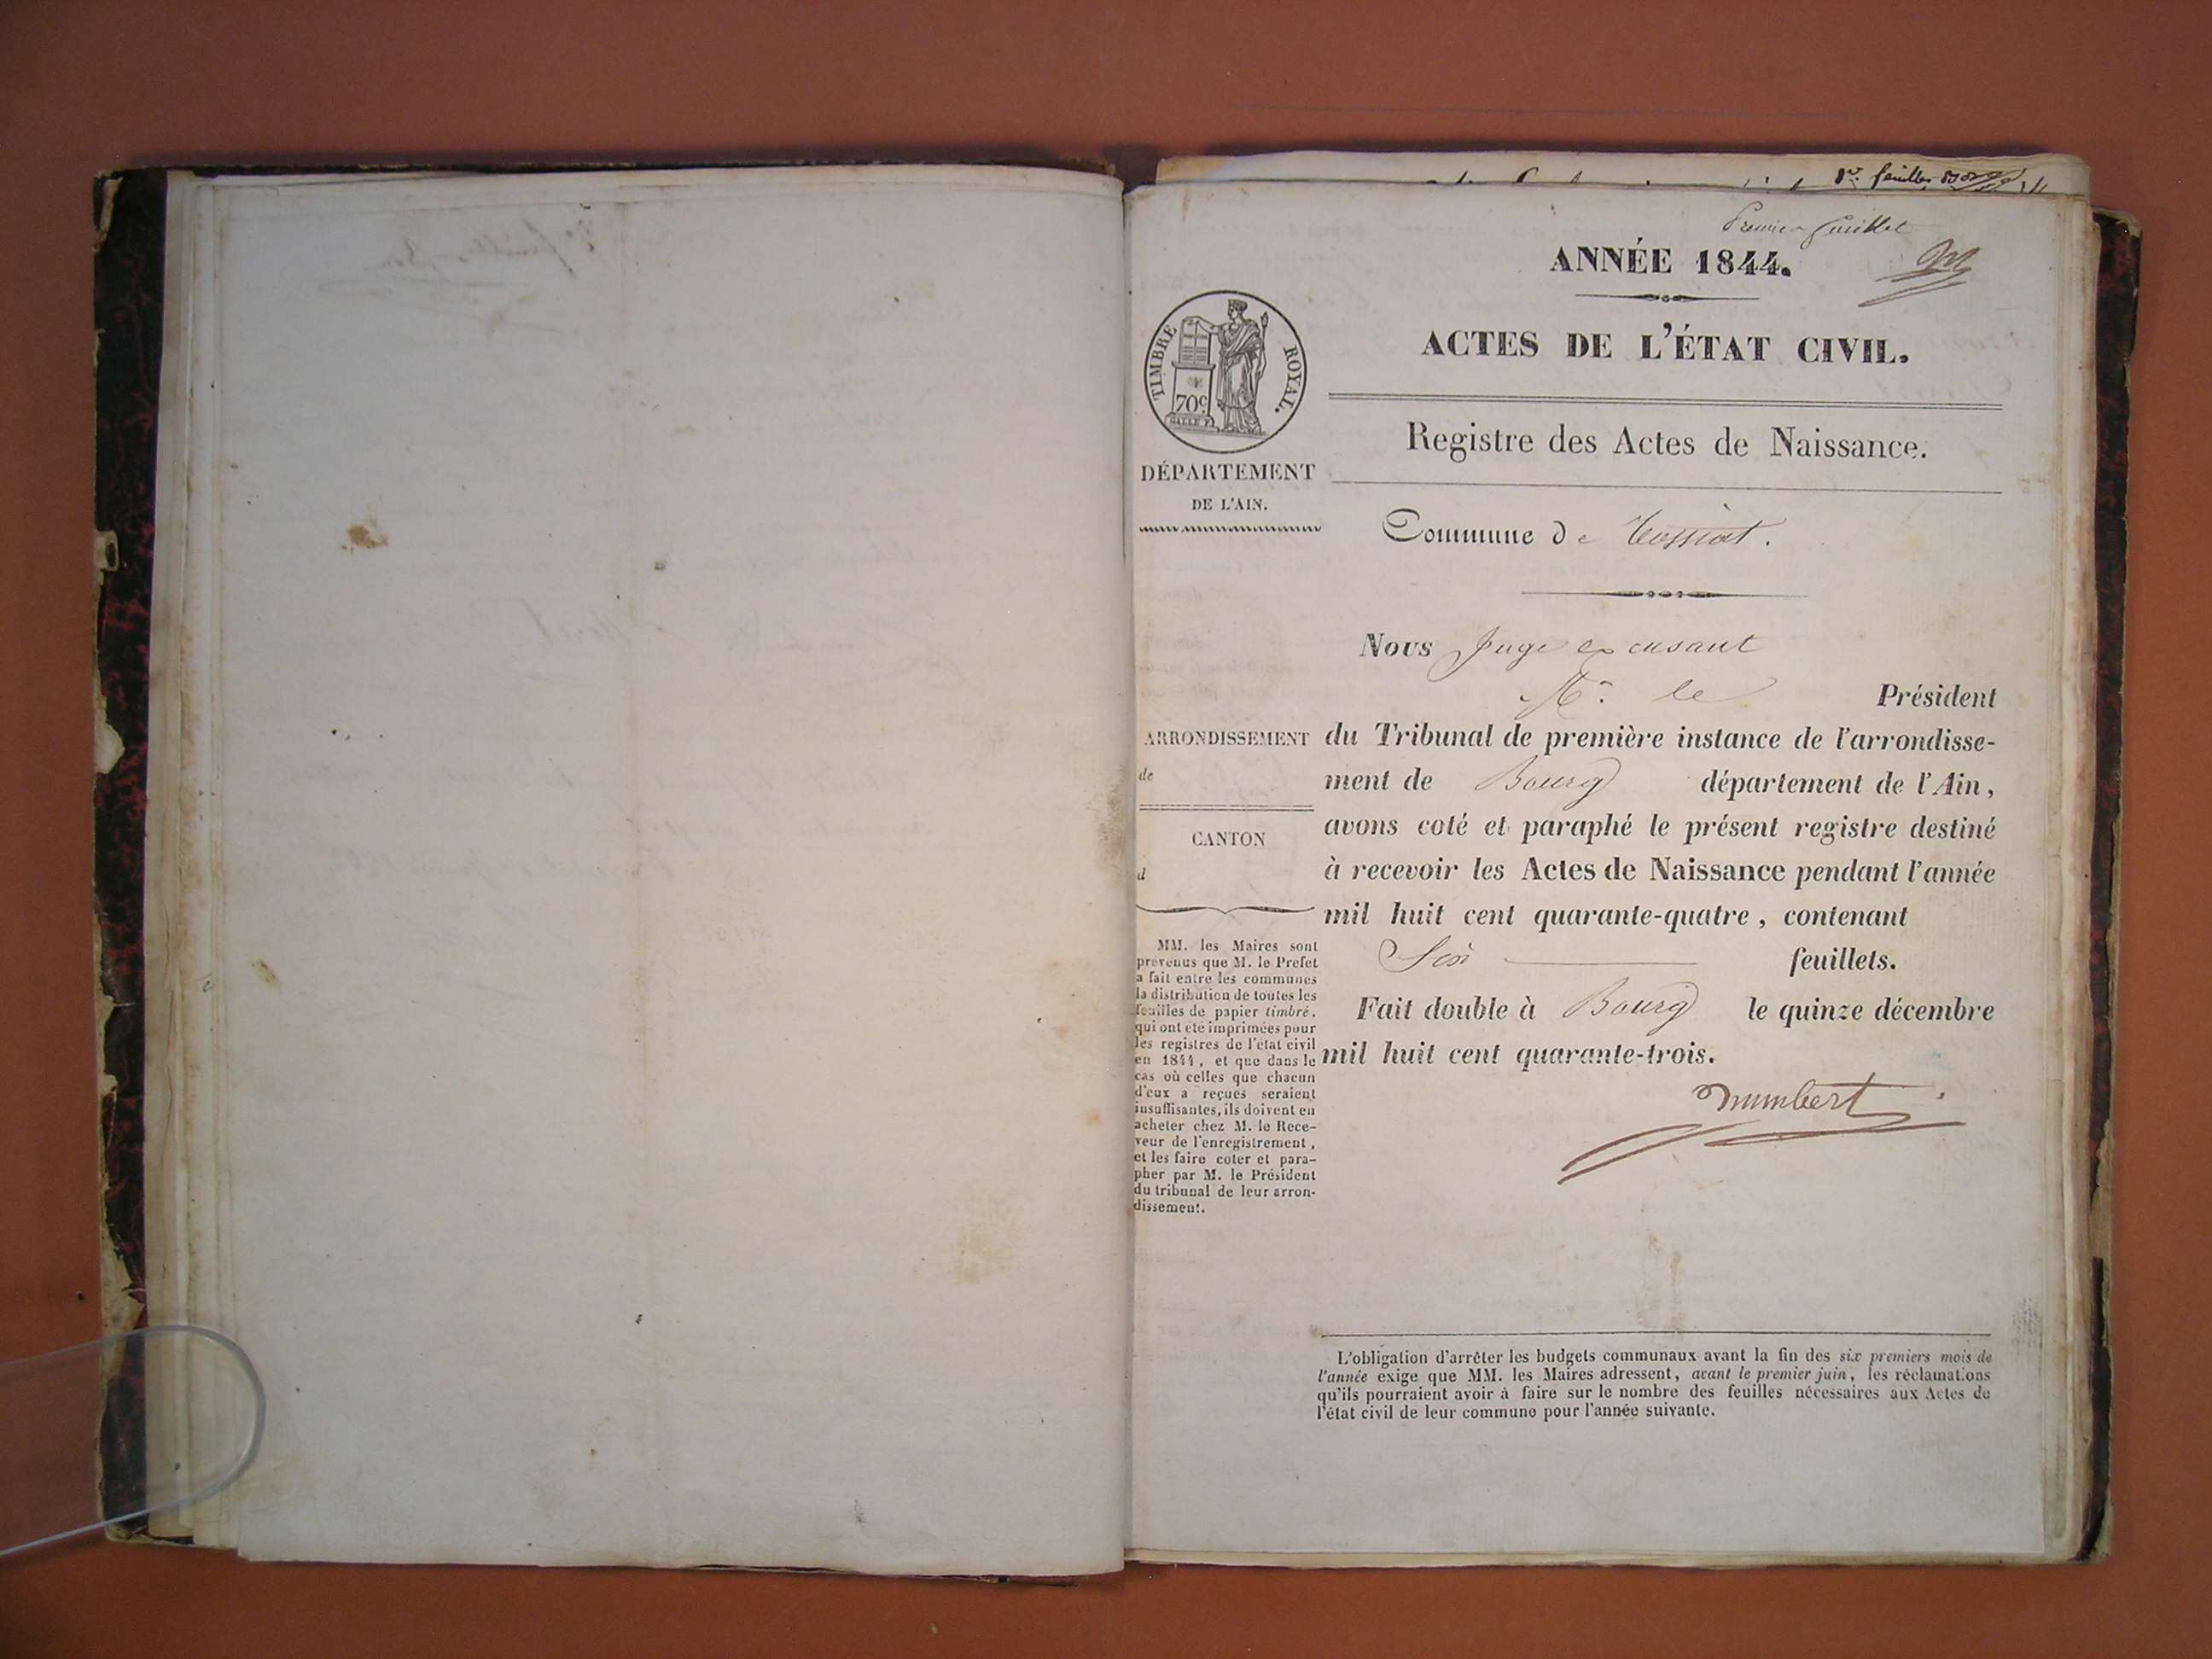 feuille
Premier feuillet
ANNÉE 1844.
ACTES DE L'ÉTAT CIVIL.
TIMBRE ROYAL.
70c
DÉPARTEMENT
DE L'AIN.
Registre des Actes de Naissance.
Commune de Tossiat.
Nous Juge excusant
Mr. le Président
ARRONDISSEMENT
de
CANTON
d
du Tribunal de première instance de l'arrondisse-
ment de Bourg département de l'Ain,
avons coté et paraphé le présent registre destiné
à recevoir les Actes de Naissance pendant l'année
mil huit cent quarante-quatre, contenant
Six feuillets.
Fait double à Bourg le quinze décembre
mil huit cent quarante-trois.
MM. les Maires sont
prévenus que M. le Prefet
a fait entre les communes
la distribution de toutes les
feuilles de papier timbré,
qui ont été imprimées pour
les registres de l'état civil
en 1844, et que dans le
cas où celles que chacun
d'eux a reçues seraient
insuffisantes, ils doivent en
acheter chez M. le Rece-
veur de l'enregistrement,
et les faire coter et para-
pher par M. le Président
du tribunal de leur arron-
dissement.
L'obligation d'arrêter les budgets communaux avant la fin des six premiers mois de
l'année exige que MM. les Maires adressent, avant le premier juin, les réclamations
qu'ils pourraient avoir à faire sur le nombre des feuilles nécessaires aux Actes de
l'état civil de leur commune pour l'année suivante.